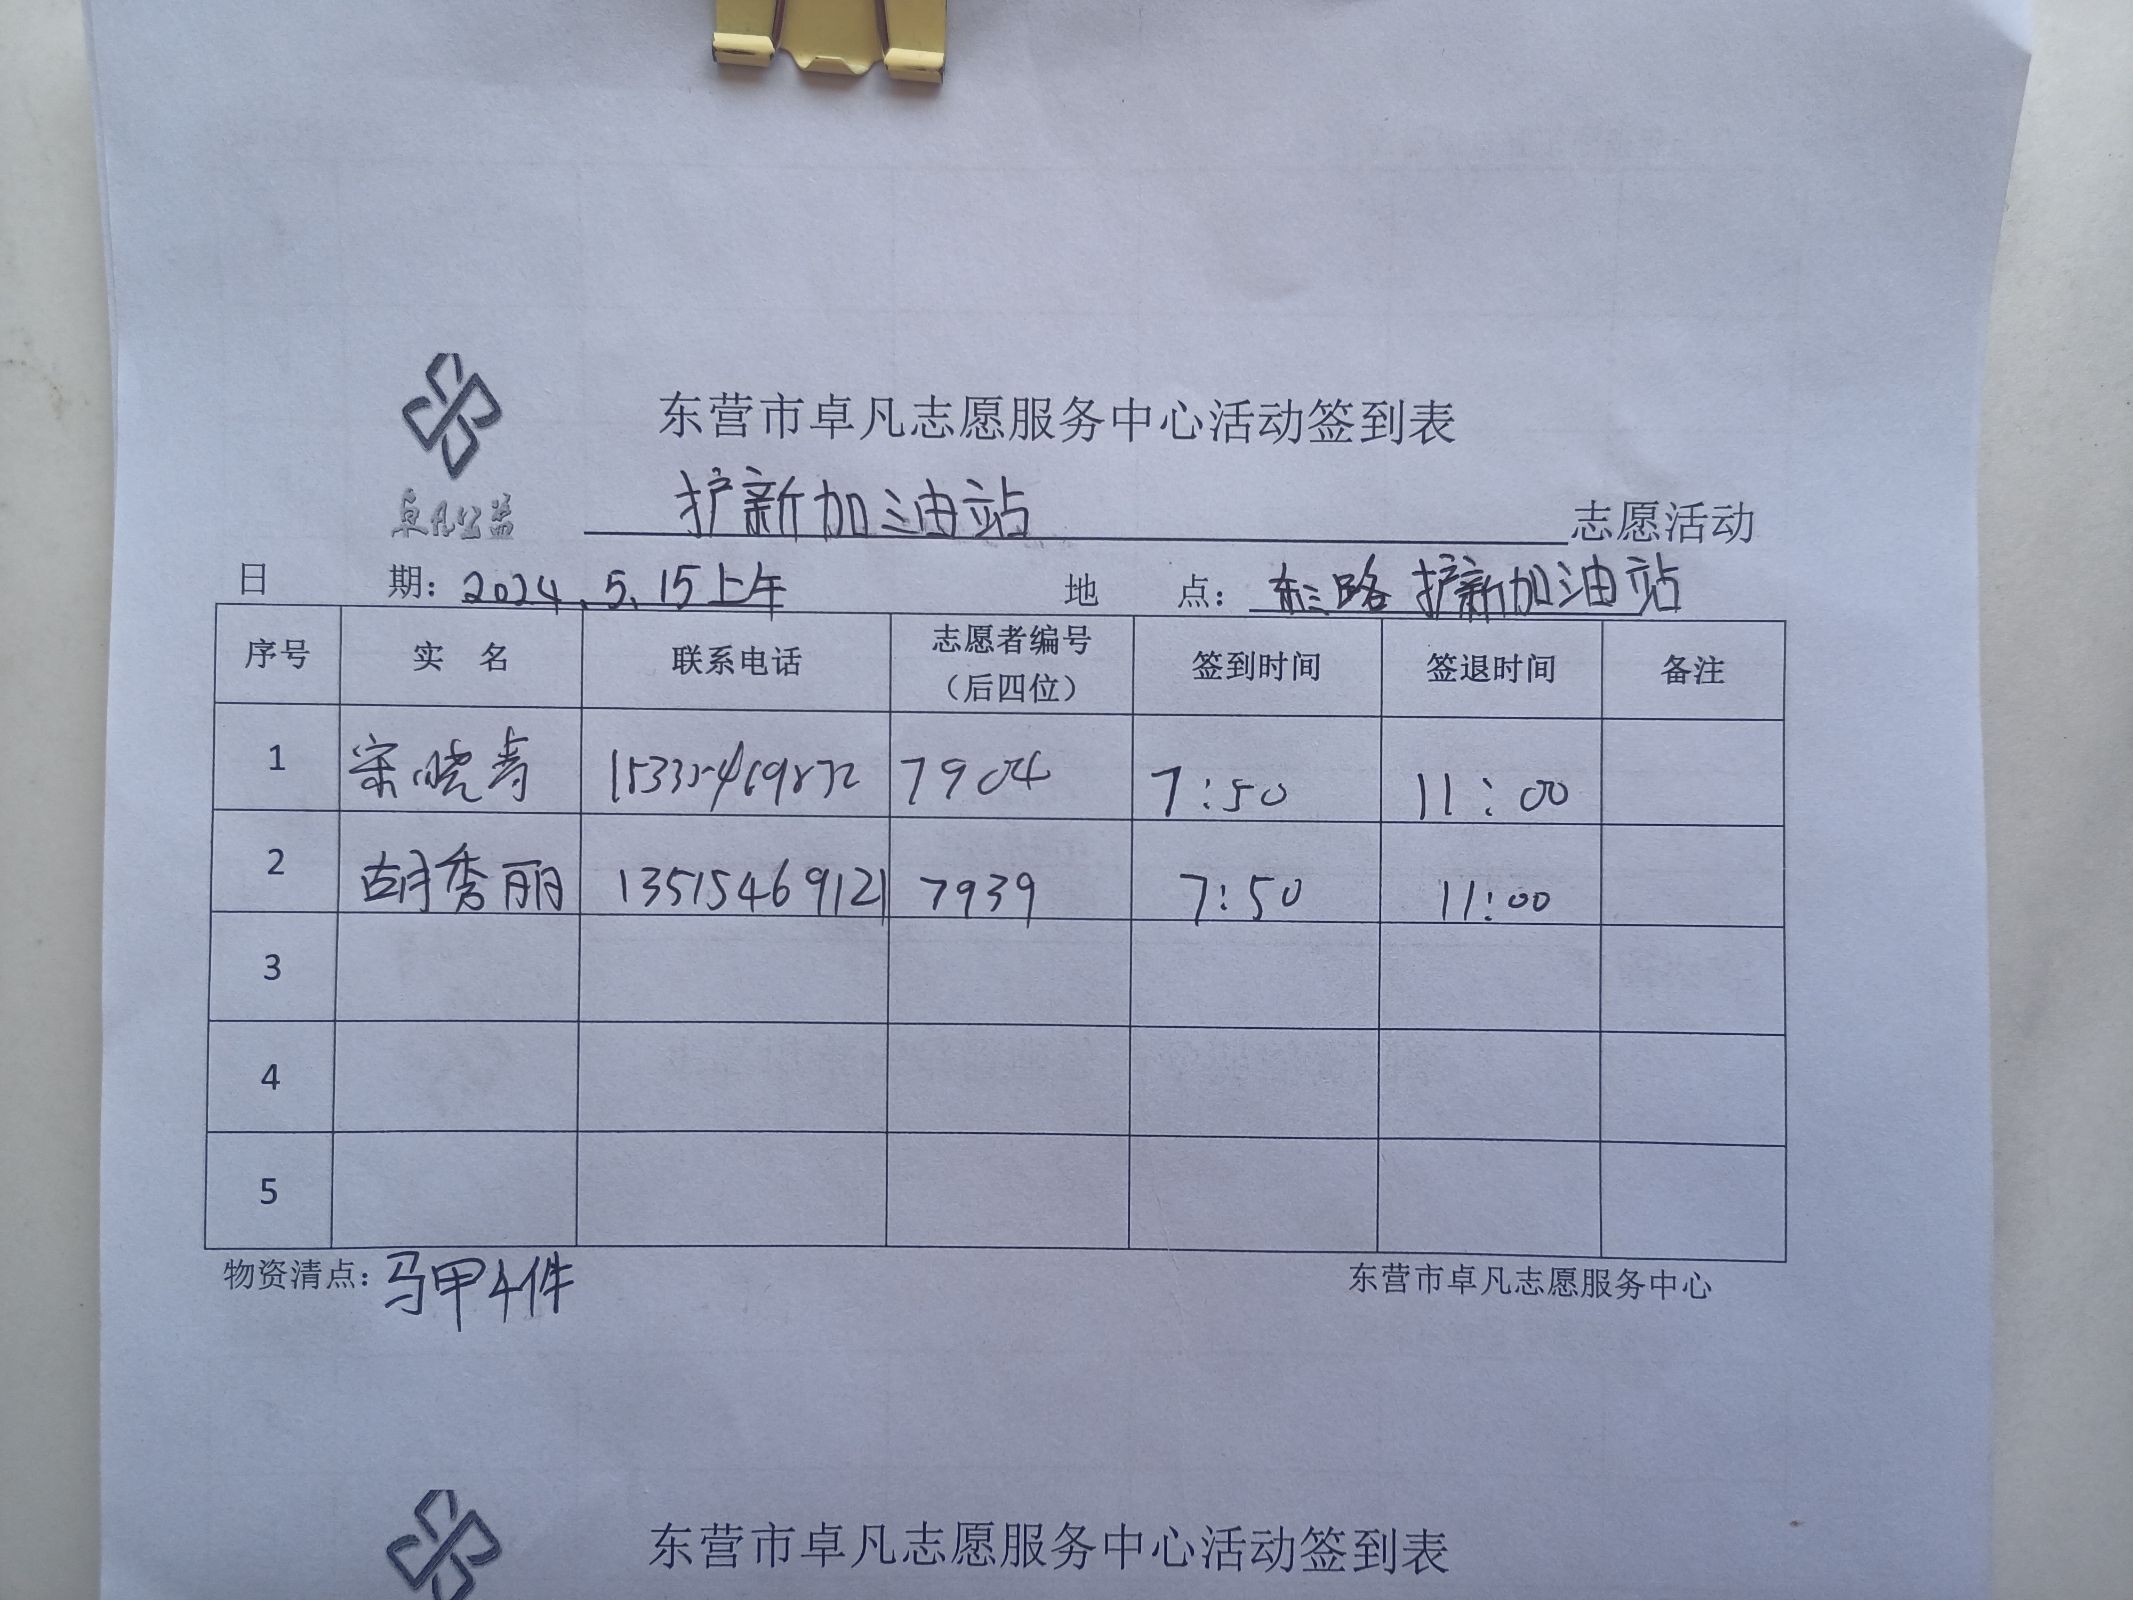 东营市卓凡志愿服务中心活动签到表
卓凡公益 护新加油站 志愿活动
日 期：2024.5.15上午 地 点：东三路 护新加油站
序号 实 名 联系电话 志愿者编号（后四位） 签到时间 签退时间 备注
1 宋晓青 7904 7:50 11:00
2 胡秀丽 13515469121 7939 7:50 11:00
3
4
5
物资清点：马甲4件 东营市卓凡志愿服务中心
东营市卓凡志愿服务中心活动签到表